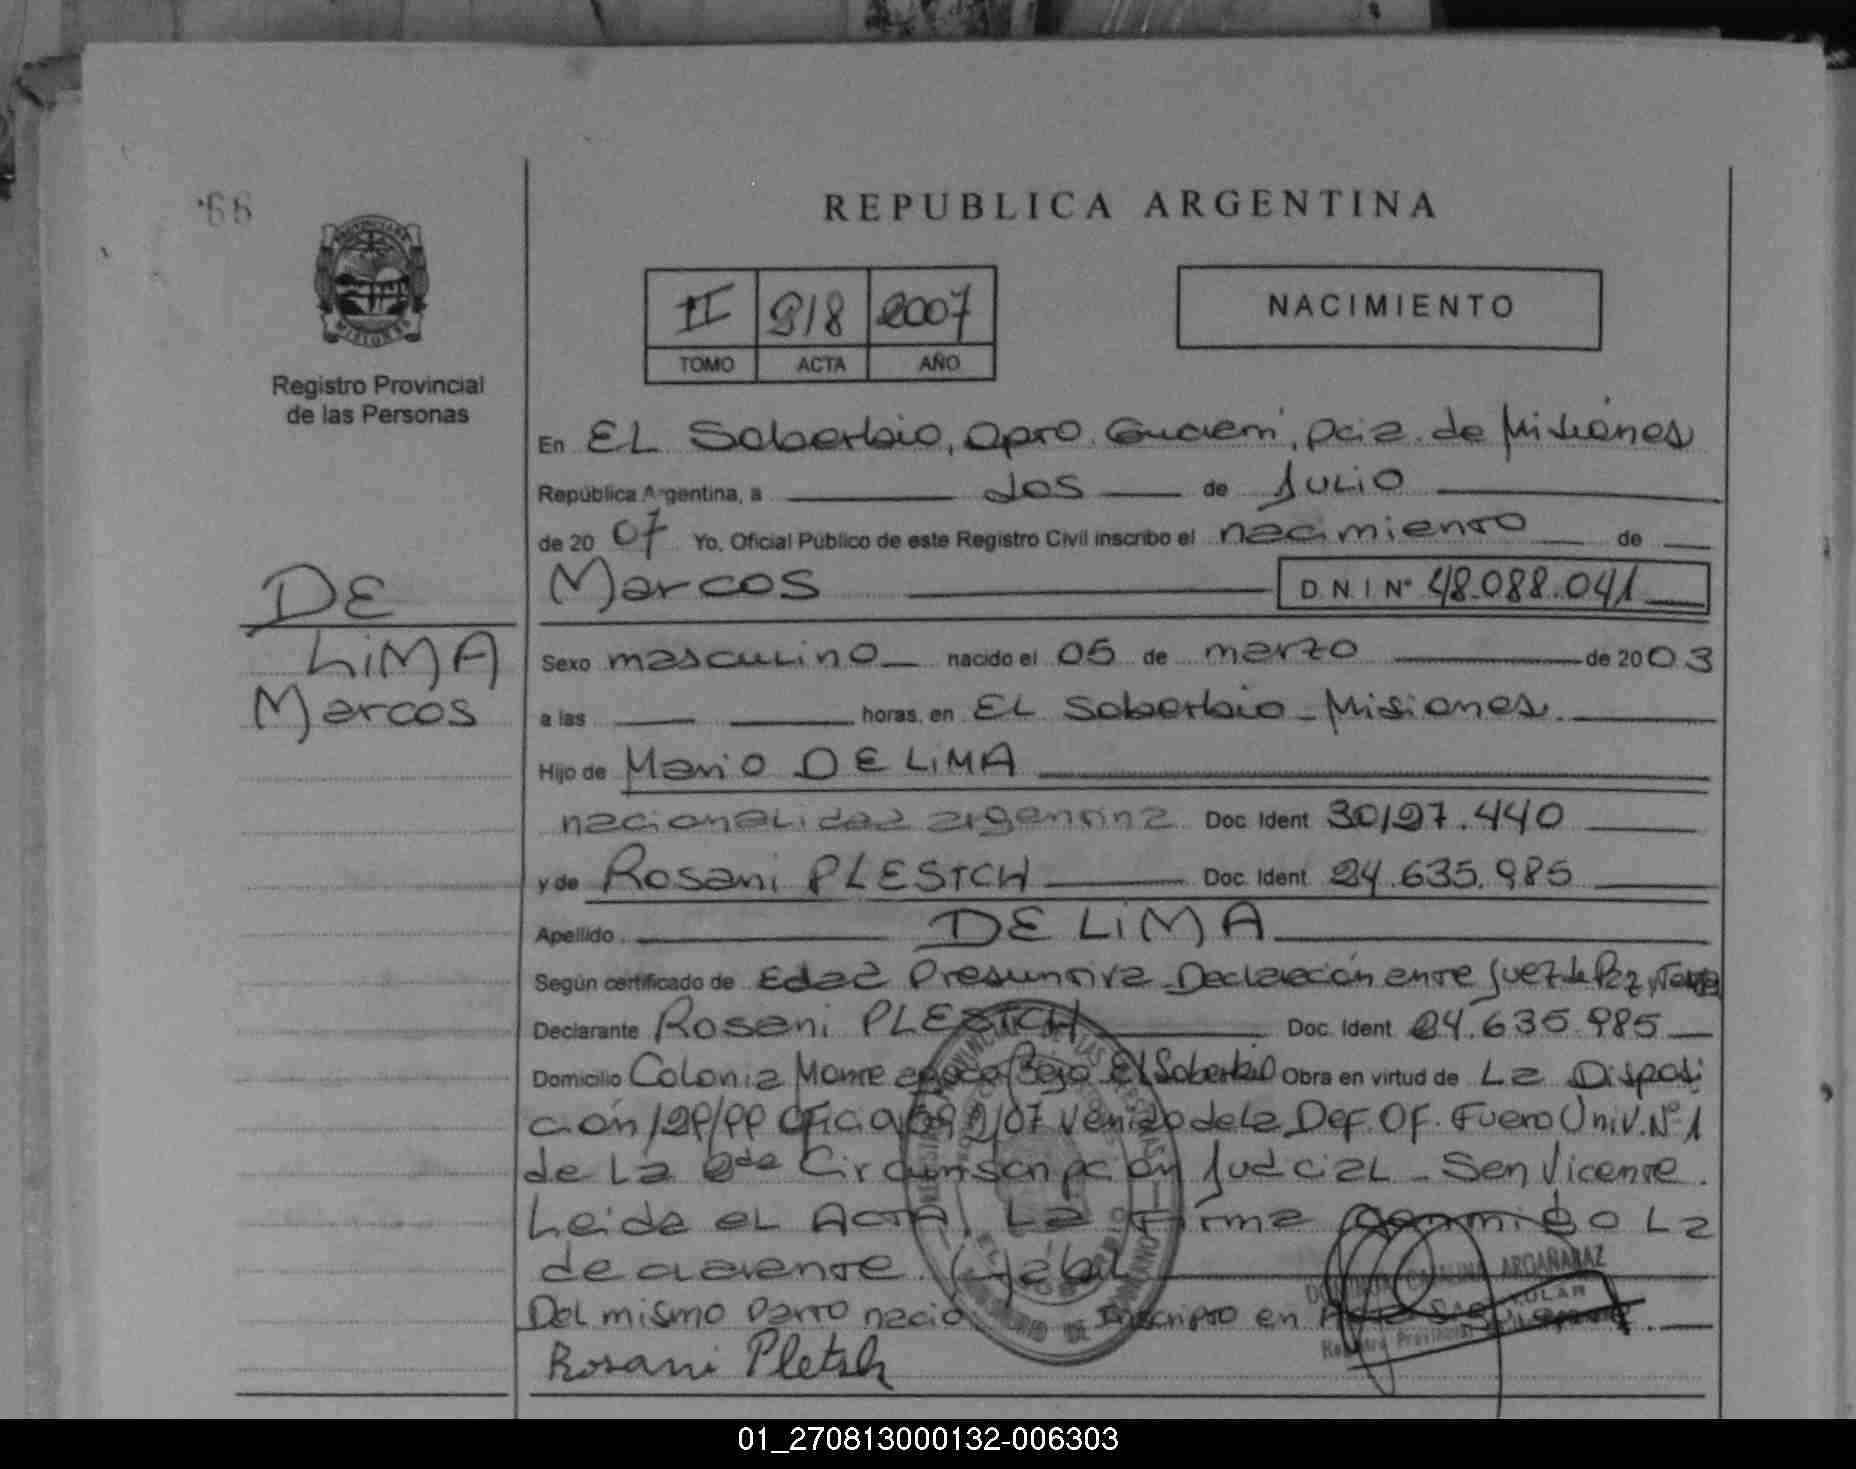 REPUBLICA ARGENTINA
II 918 2007
TOMO ACTA AÑO
NACIMIENTO
MISIONES
Registro Provincial
de las Personas
DE
LiMA
Marcos
En EL Soberbio, Dpto. Guarani, Pcia. de Misiones
República Argentina, a dos de Julio
de 2007 Yo, Oficial Público de este Registro Civil inscribo el nacimiento de
Marcos D N I Nº 48.088.041
Sexo masculino nacido el 05 de marzo de 2003
a las horas, en EL Soberbio - Misiones.
Hijo de Mario DE LiMA
nacionalidad argentina Doc. Ident 30197.440
y de Rosani PLESTCH Doc. Ident. 24.635.985
Apellido DE LiMA
Según certificado de Edad Presuntiva - Declaración ante Juez de Paz y
Declarante Rosani PLESTCH Doc. Ident. 24.635.985
Domicilio Colonia Monte Bajo El Soberbio Obra en virtud de La Disposi
ción 129/99 Oficio /07 Venido de la Def. Of. Fuero Univ. Nº 1
de La 2da Circunscripción Judcial - San Vicente.
Leida el Acta, La firma conmigo La
declarante. Habil
Del mismo Parto nació Inscripto en Acta
ARGAÑARAZ
Rosani Pletsch
01_270813000132-006303